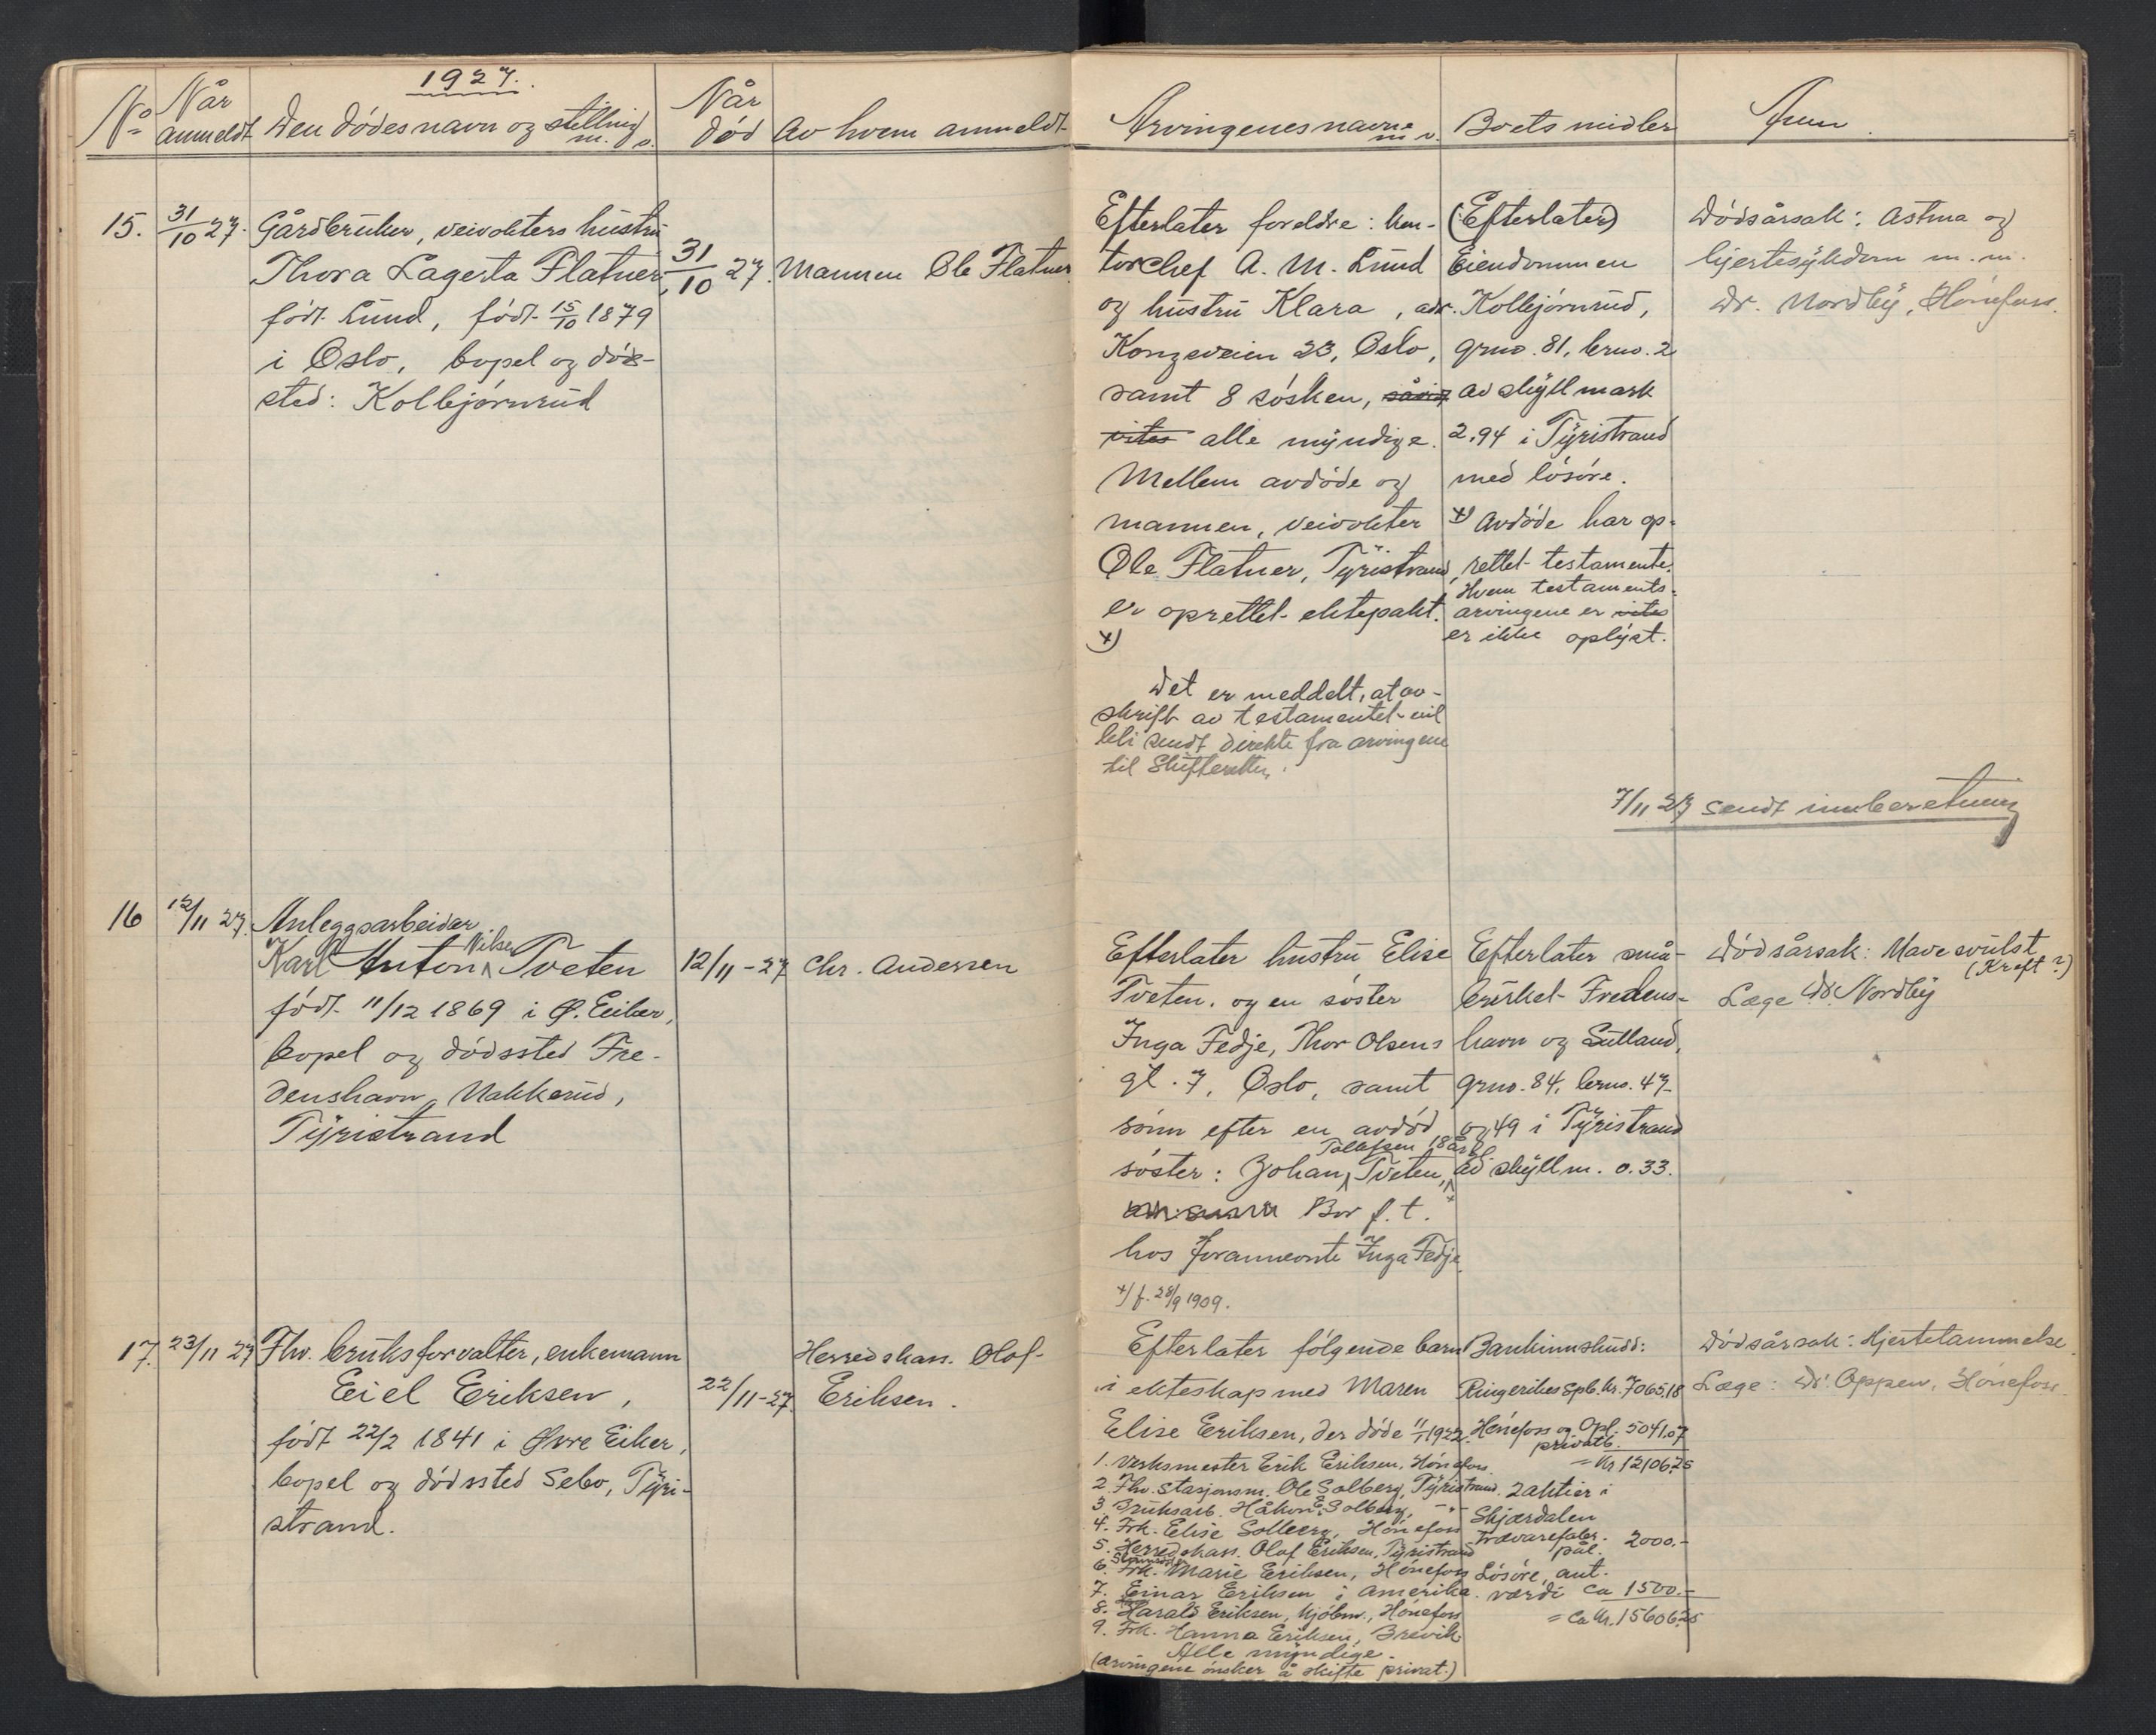 1927.
No Når anmeldt Den dødes navn og stilling m. v. Når død Av hvem anmeldt
Arvingenes navne m. v. Boets midler Anm.
15. 31/10 27. Gårdbruker, veivokters hustru
Thora Lagerta Flatner,
født Lund, født 15/10 1879
i Oslo, bopel og døds-
sted: Kolbjørnrud
31/10 27.
Mannen Ole Flatner.
Efterlater foreldre: kon-
torchef A. M. Lund
og hustru Klara, adr.
Kongsveien 23, Oslo,
samt 8 søsken, såvidt
vites alle myndige.
Mellem avdøde og
mannen, veivokter
Ole Flatner, Tyristrand,
er oprettet ektepakt.
x)
Det er meddelt, at av-
skrift av testamentet vil
bli sendt direkte fra arvingene
til Skifteretten.
(Efterlater)
Eiendommen
Kolbjørnrud,
grno. 81, brno. 2
av skyld mark
2,94 i Tyristrand
med løsøre.
x) Avdøde har op-
rettet testamente.
Hvem testaments-
arvingene er vites
er ikke oplyst.
Dødsårsak: Astma og
hjertesykdom m. m.
Dr. Nordby, Hønefoss.
7/11 27 sendt innberetning
16 12/11 27. Anleggsarbeider
Karl Anton Nilsen Tveten
født 11/12 1869 i Ø. Eiker,
bopel og dødssted Fre-
denshavn, Nakkerud,
Tyristrand
12/11-27
Chr. Andersen
Efterlater hustru Elise
Tveten. og en søster
Inga Fedje, Thor Olsens
gt. 7, Oslo, samt
sønn efter en avdød
søster: Johan Tollefsen Tveten, 18 år x
Bor f. t.
hos forannevnte Inga Fedje.
x) f. 28/9 1909.
Efterlater små-
bruket Fredens-
havn og Sutland,
grno. 84, brno. 47
og 49 i Tyristrand
av skyld m. 0.33.
Dødsårsak: Mavesvulst
(Kreft?)
Læge Dr. Nordby
17. 23/11 27 Fhv. bruksforvalter, enkemann
Eiel Eriksen,
født 22/2 1841 i Øvre Eiker,
bopel og dødssted Sebo, Tyri-
strand.
22/11-27.
Herredskass. Olaf
Eriksen.
Efterlater følgende barn
i ekteskap med Maren
Elise Eriksen, der døde 11/1 1922.
1. Verksmester Erik Eriksen, Hønefoss.
2 Fhv. Stasjonsm. Ole Solberg, Tyristrand.
3 Bruksarb. Håkon E. Solberg, -"-
4. Frk. Elise Solberg, Hønefoss
5. Herredskass. Olaf Eriksen, Tyristrand
6. Frk. Marie Eriksen, Hønefoss
7. Einar Eriksen i Amerika.
8. Harald Eriksen, kjøbm., Hønefoss
9. Frk. Hanna Eriksen, Brevik.
Alle myndige.
(Arvingene ønsker å skifte privat.)
Bankinnskudd:
Ringerikes Spb. kr. 7065,18
Hønefoss og Opl. privatb. 5041.07
= Kr 12106,25
2 aktier i
Skjærdalen
Trævarefabr.
pål. 2000.-
Løsøre, ant.
værdi ca 1500.-
= Ca kr. 15606,25
Dødsårsak: Hjertelammelse.
Læge: Dr. Oppen, Hønefoss.